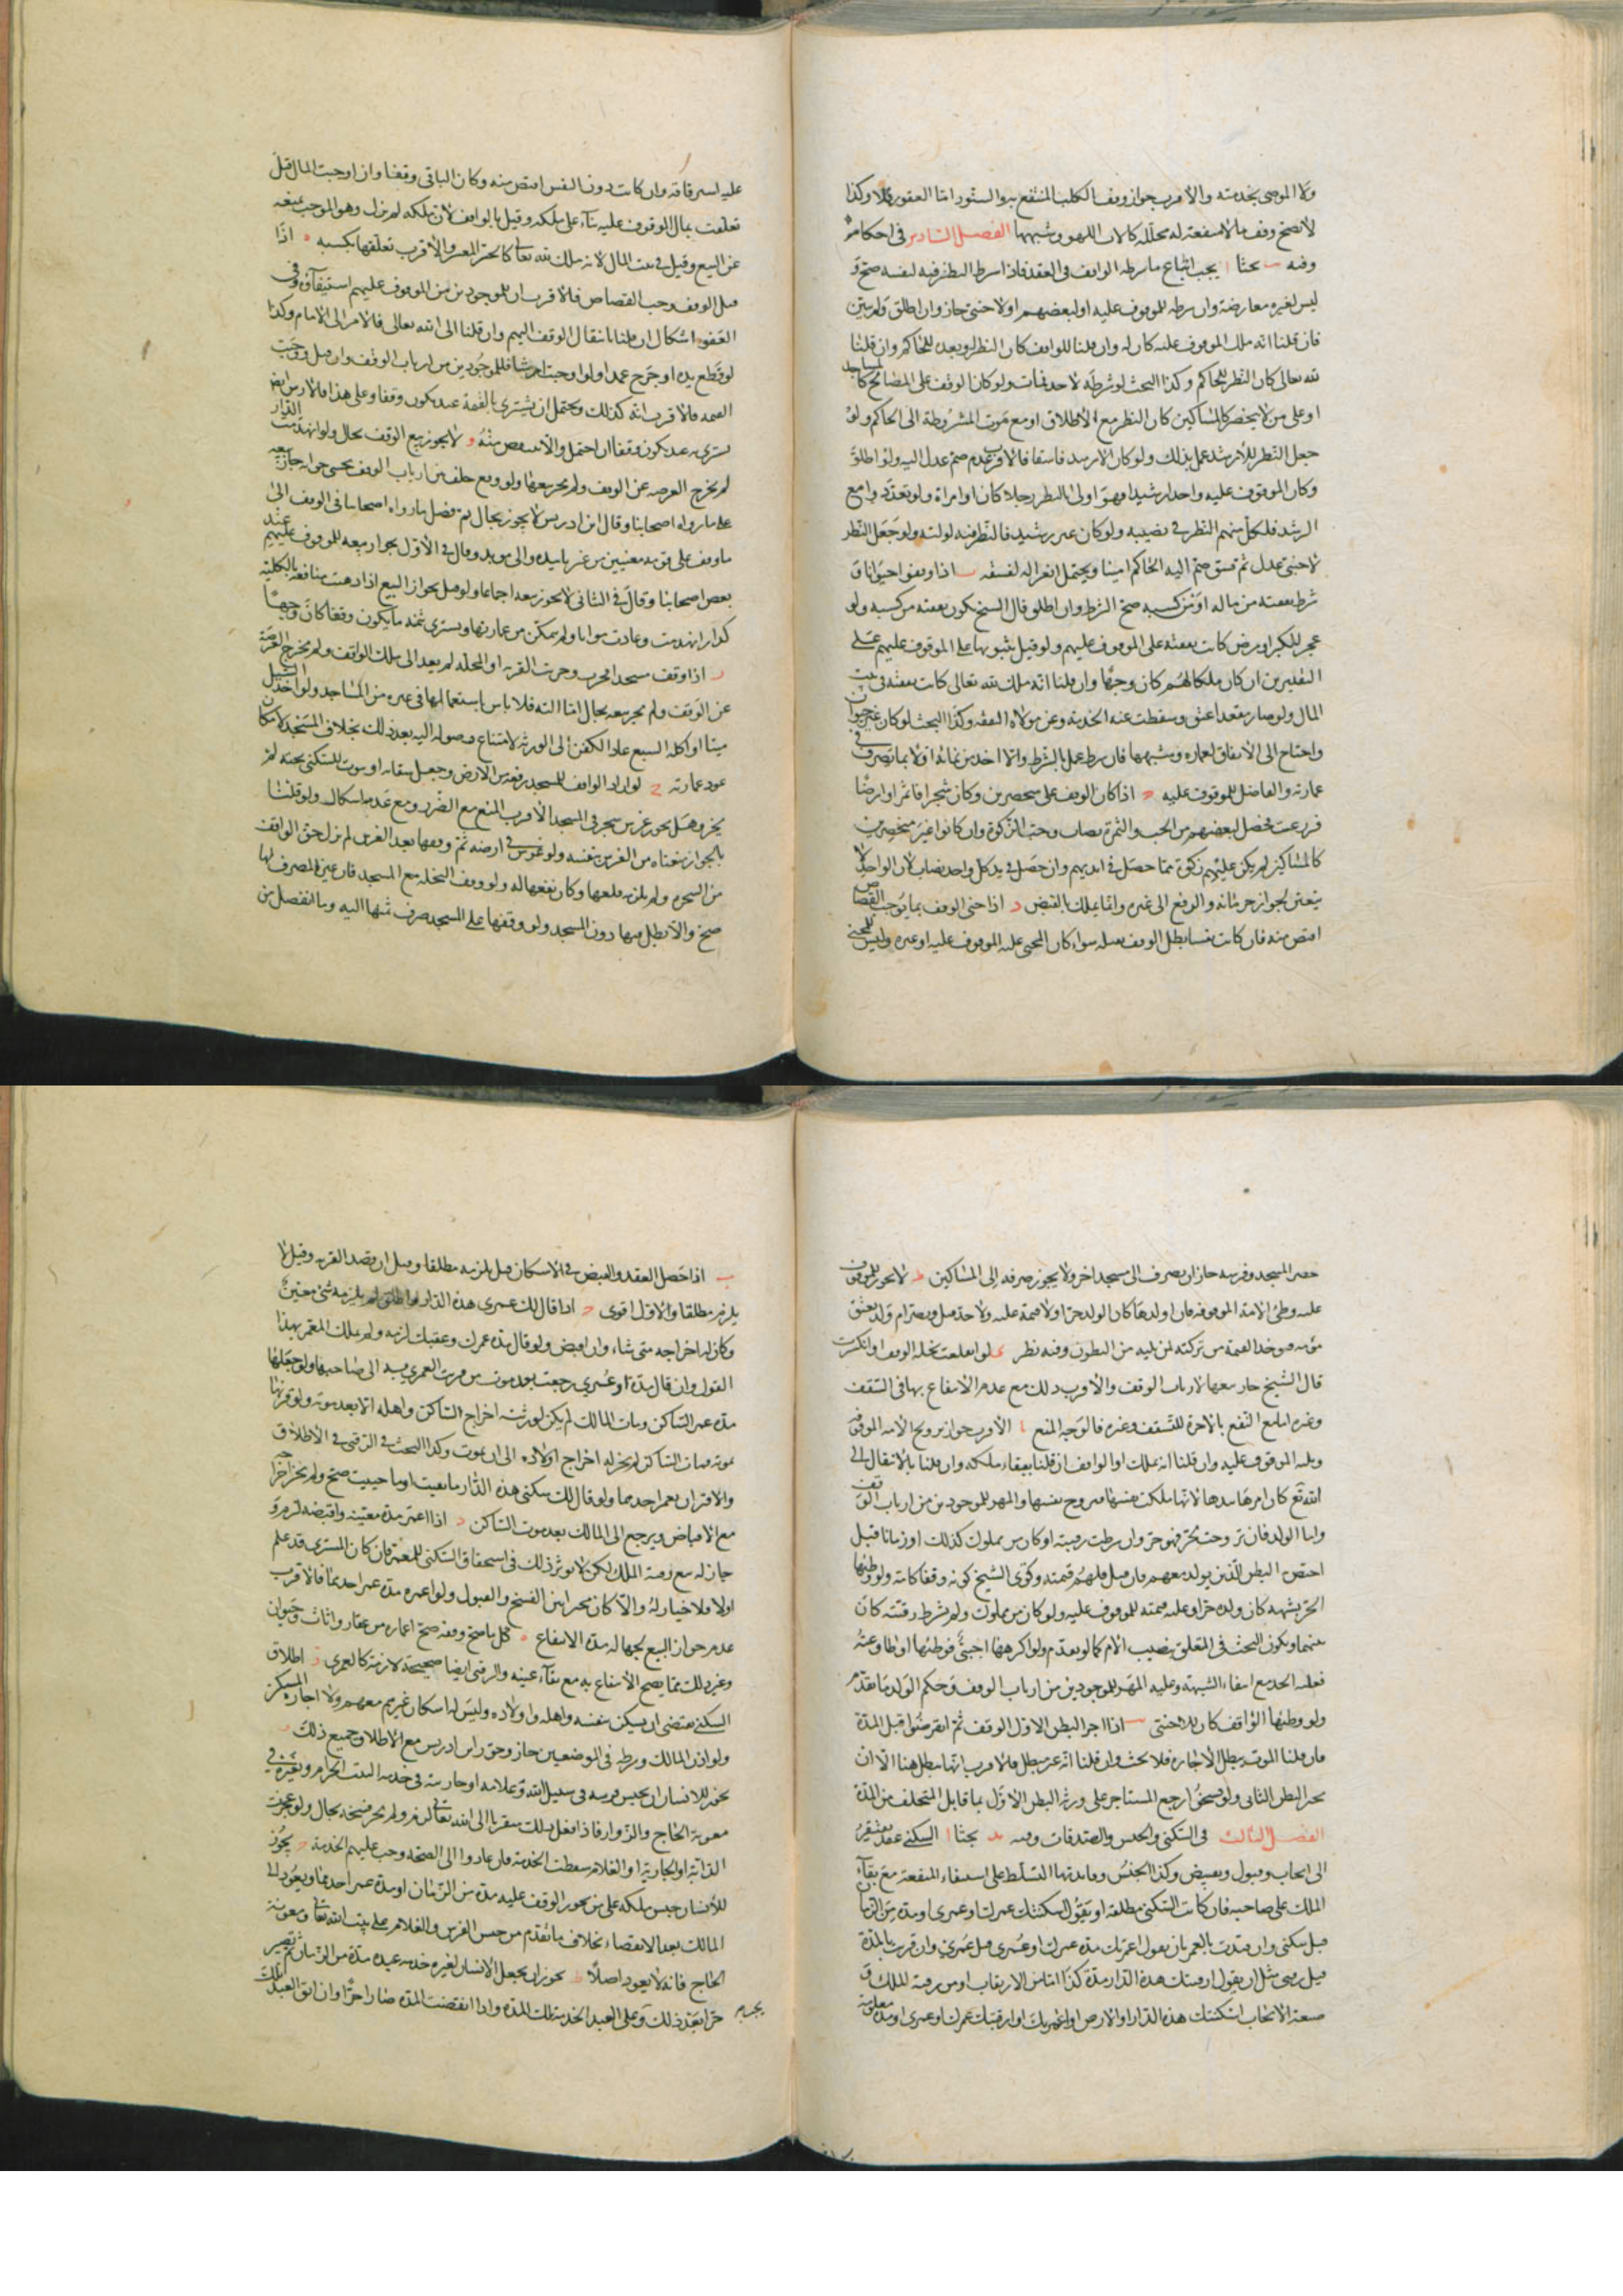 ولا الموصى بخدمته والأقرب جواز وقف الكلب المنتفع به والسنور اما العقور فلا وكذا
لا تصح وقف ما لا منفعة له محللة كالات اللهو وشبهها الفصل السادس في احكامه
وفيه بحثا ا يجب اتباع ما يشرطه الواقف في العقد فاذا شرط النظر فيه لنفسه صح و
ليس لغيره معارضته وان شرطه للموقوف عليه او لبعضهم او لاجنبي جاز وان اطلق ولم يعين
فان قلنا انه ملك الموقوف عليه كان له وان قلنا للواقف كان النظر له وبعده للحاكم وان قلنا
لله تعالى كان النظر للحاكم وكذا البحث لو شرطه لاحد فمات ولو كان الوقف على المصالح كالمساجد
او على من لا ينحصر كالمساكين كان النظر مع الاطلاق او مع موت المشروط له الى الحاكم ولو
جعل النظر للارشد عمل بذلك ولو كان الارشد فاسقا فالاقرب عدم ضم عدل اليه ولو اطلق
وكان الموقوف عليه واحدا رشيدا فهو اولى بالنظر رجلا كان او امراة ولو تعدد وا مع
الرشد فلكل منهم النظر في نصيبه ولو كان غير رشيد فالنظر فيه لوليه ولو جعل النظر
لاجنبي عدل ثم فسق ضم اليه الحاكم امينا ويحتمل انعزاله لفسقه ب اذا وقف حيوانا و
شرط نفقته من ماله او من كسبه صح الشرط وان اطلق قال الشيخ يكون نفقته من كسبه ولو
عجز لكبر او مرض كانت نفقته على الموقوف عليهم ولو قيل بثبوتها على الموقوف عليهم على
التقديرين ان كان ملكا لهم كان وجها وان قلنا انه ملك لله تعالى كانت نفقته في بيت
المال ولو صار مقعدا عتق وسقطت عنه الخدمة وعن مولاه النفقة وكذا البحث لو كان غير حيوان
واحتاج الى الانفاق لعمارة وشبهها فان شرط عمل بالشرط والا اخذ من نمائه اولا بما تصرف في
عمارته والفاضل للموقوف عليه ج اذا كان الوقف على منحصرين وكان شجرا فاثمر او ارضا
فزرعت فحصل لبعضهم من الحب والثمرة نصاب وجبت الزكوة وان كانوا غير منحصرين
كالمساكين لم يكن عليهم زكوة مما حصل في ايديهم وان حصل في يد كل واحد نصاب لان الواحد لا
يتعين لجواز حرمانه والدفع الى غيره وانما يملك بالقبض د اذا جنى الوقف بما يوجب القصاص
اقتص منه فان كانت نفسا بطل الوقف بقتله سواء كان المجني عليه الموقوف عليه او غيره وليس للمجني
عليه استرقاقه وان كانت دون النفس اقتص منه وكان الباقي وقفا وان اوجبت المال قيل
تعلقت بمال الموقوف عليه بناء على ملكه وقيل بالواقف لان ملكه لم يزل وهو الموجب لمنعه
عن البيع وقيل في بيت المال لانه ملك لله تعالى كالحر المعسر والاقرب تعلقها بكسبه ه اذا
قتل الوقف وجب القصاص فالاقرب ان للموجودين من الموقوف عليهم استيفاؤه وفي
العفو اشكال ان قلنا بانتقال الوقف اليهم وان قلنا الى الله تعالى فالامر الى الامام وكذا
لو قطع يده او جرح عمدا ولو اوجبت ارشا فللموجودين من ارباب الوقف وان قتل ووجبت
القيمة فالاقرب انه كذلك ويحتمل ان يشترى بالقيمة عبد يكون وقفا وعلى هذا فالارش ايضا
يشترى به عبد يكون وقفا ان احتمل والا شقص منه و لا يجوز بيع الوقف بحال ولو انهدمت الدار
لم يخرج العرصة عن الوقف ولم يجز بيعها ولو وقع خلف بين ارباب الوقف يخشى خرابه جاز بيعه
على ما رواه اصحابنا وقال ابن ادريس لا يجوز بحال ثم فصل ما رواه اصحابنا في الوقف الى
ما وقف على قوم معينين من غير تابيد والى مؤبد وقال في الاول يجوز بيعه للموقوف عليهم عند
بعض اصحابنا وقال في الثاني لا يجوز بيعه اجماعا ولو قيل بجواز البيع اذا ذهبت منافعه بالكلية
كدار انهدمت وعادت مواتا ولم يتمكن من عمارتها ويشترى بثمنه ما يكون وقفا كان وجها
ز اذا وقف مسجدا فخرب وخربت القرية او المحلة لم يعد الى ملك الواقف ولم يخرج العرصة
عن الوقف ولم يجز بيعه بحال اما آلته فلا باس باستعمالها في غيره من المساجد ولو اخذ السيل
ميتا او اكله السبع عاد الكفن الى الورثة لامتناع وصوله اليه بعد ذلك بخلاف المسجد لامكان
عود عمارته ح لو اراد الواقف للمسجد رفعه من الارض وجعل سقاية او بيوت للسكنى تحته لم
يجز وهل يجوز غرس شجر في المسجد الاقرب المنع مع الضرر ومع عدمه اشكال ولو قلنا
بالجواز منعناه من الغرس بنفسه ولو غرس في ارضه ثم وقفها بعد الغرس لم يزل حق الواقف
من الشجرة ولم يلزمه قلعها وكان نفعها له ولو وقف النخلة مع المسجد فان عين المصرف لها
صح والا بطل فيها دون المسجد ولو وقفها على المسجد صرف ثمنها اليه وما انفضل من
حصر المسجد وفرشه جاز ان يصرف الى مسجد اخر ولا يجوز صرفه الى المساكين ط لا يجوز للموقوف
عليه وطئ الامة الموقوفة فان اولدها كان الولد حرا ولا قيمة عليه ولا حد قيل وتصير ام ولد تعتق
بموته ويؤخذ القيمة من تركته لمن يليه من البطون وفيه نظر ى لو انقلعت نخلة الوقف او انكسرت
قال الشيخ جاز بيعها لارباب الوقف والاقرب ذلك مع عدم الانتفاع بها في التسقف
وغيره اما مع النفع بالاجرة للتسقف وغيره فالوجه المنع يا الاقرب جواز تزويج الامة الموقوفة
ويليه الموقوف عليه وان قلنا انه يملك او الواقف ان قلنا ببقاء ملكه وان قلنا بالانتقال الى
الله تع كان امرها بيدها لانها ملكت نفسها فتزوج نفسها والمهر للموجودين من ارباب الوقف
واما الولد فان تزوجت بحر فهو حر وان شرطت رقيته او كان من مملوك كذلك او زنا قيل
اختص البطن الذين يولد معهم فان قتل فلهم قيمته وقوى الشيخ كونه وقفا كامه ولو وطئها
الحر بشبهة كان ولده حرا وعليه قيمته للموقوف عليه ولو كان من مملوك ولم يشرط رقيته كان
بينهما ويكون البحث في المتعلق بنصيب الام كما لو تقدم ولو اكرهها اجنبي فوطئها او طاوعته
فعليه الحد مع انتفاء الشبهة وعليه المهر للموجودين من ارباب الوقف وحكم الولد ما تقدم
ولو وطئها الواقف كان كالاجنبي يب اذا اجر البطن الاول الوقف ثم انقرضوا قبل المدة
فان قلنا الموت يبطل الاجارة فلا بحث وان قلنا انه غير مبطل فالاقرب انها تبطل هنا الا ان
يجيز البطن الثاني ولو فسخوا رجع المستاجر على ورثة البطن الاول بما قابل المتخلف من المدة
الفصل الثالث في السكنى والحبس والصدقات وفيه يد بحثا ا السكنى عقد يفتقر
الى ايجاب وقبول وقبض وكذا الحبس وفائدتهما التسلط على استيفاء المنفعة مع بقاء
الملك على صاحبه فان كانت السكنى مطلقة او يقول اسكنتك عمرك او عمرى او مدة من الزمان
قيل سكنى وان قيدت بالعمر بان يقول اعمرتك مدة عمرك او عمرى قيل عمرى وان قرنت بالمدة
قيل رقبى مثل ان يقول ارقبتك هذه الدار مدة كذا اما من الارتقاب او من رقبة الملك و
صيغة الايجاب اسكنتك هذه الدار او الارض او اعمرتك او ارقبتك عمرك او عمرى او مدة معلومة
ب اذا حصل العقد والقبض في الاسكان قيل يلزمه مطلقا وقيل ان قصد القربة وقيل لا
يلزم مطلقا والاول اقوى ج اذا قال لك عمرى هذه الدار واطلق لم يلزمه شئ معين
وكان له اخراجه متى شاء وان اقبض ولو قال مدة عمرك وعقبك لزمه ولم يملك المعمر بهذا
القول وان قال مدة او عمرى رجعت بعد موت من قرنت العمرى به الى صاحبها ولو جعلها
مدة عمر الساكن ومات المالك لم يكن لورثته اخراج الساكن واهله الا بعد موته ولو قرنها
بموته فمات الساكن لم يجز له اخراج اولاده الى ان يموت وكذا البحث في الرقبى في الاطلاق
والاقتران بعمر احدهما ولو قال لك سكنى هذه الدار ما بقيت او ما حييت صح ولم يجز اخراجه
مع الاقباض ويرجع الى المالك بعد موت الساكن د اذا اعمر مدة معينة واقبضه لزم و
جاز له بيع رقبة الملك لكن لا يؤثر ذلك في استحقاق السكنى للمعمر فان كان المشترى قد علم
اولا فلا خيار له والا كان مخيرا بين الفسخ والقبول ولو اعمره مدة عمر احدهما فالاقرب
عدم جواز البيع لجهالة مدة الانتفاع ه كل ما صح وقفه صح اعماره من عقار واثاث وحيوان
وغير ذلك مما يصح الانتفاع به مع بقاء عينه والرقبى ايضا صحيحة لازمة كالعمرى و اطلاق
السكنى يقتضى ان يسكن بنفسه واهله واولاده وليس له اسكان غيرهم معهم ولا اجارة المسكن
ولو اذن المالك وشرطه في الموضعين جاز وجوز ابن ادريس مع الاطلاق جميع ذلك ز
يجوز للانسان ان يحبس فرسه في سبيل الله وغلامه او جاريته في خدمة البيت الحرام وبعيره في
معونة الحاج والزوار فاذا فعل ذلك متقربا الى الله تعالى لزم ولم يجز فسخه بحال ولو عجزت
الدابة او الجارية او الغلام سقطت الخدمة فان عادوا الى الصحة وجب عليهم الخدمة ح يجوز
للانسان حبس ملكه على من يجوز الوقف عليه مدة من الزمان او مدة عمر احدهما ويعود الى
المالك بعد الانقضاء بخلاف ما تقدم من حبس الفرس والغلام على بيت الله تعالى ومعونة
الحاج فانه لا يعود اصلا ط يجوز ان يجعل الانسان لغيره خدمة عبده مدة من الزمان ثم يصير
حرا بعد ذلك وعلى العبد الخدمة تلك المدة واذا انقضت المدة صار حرا وان ابق العبد تلك